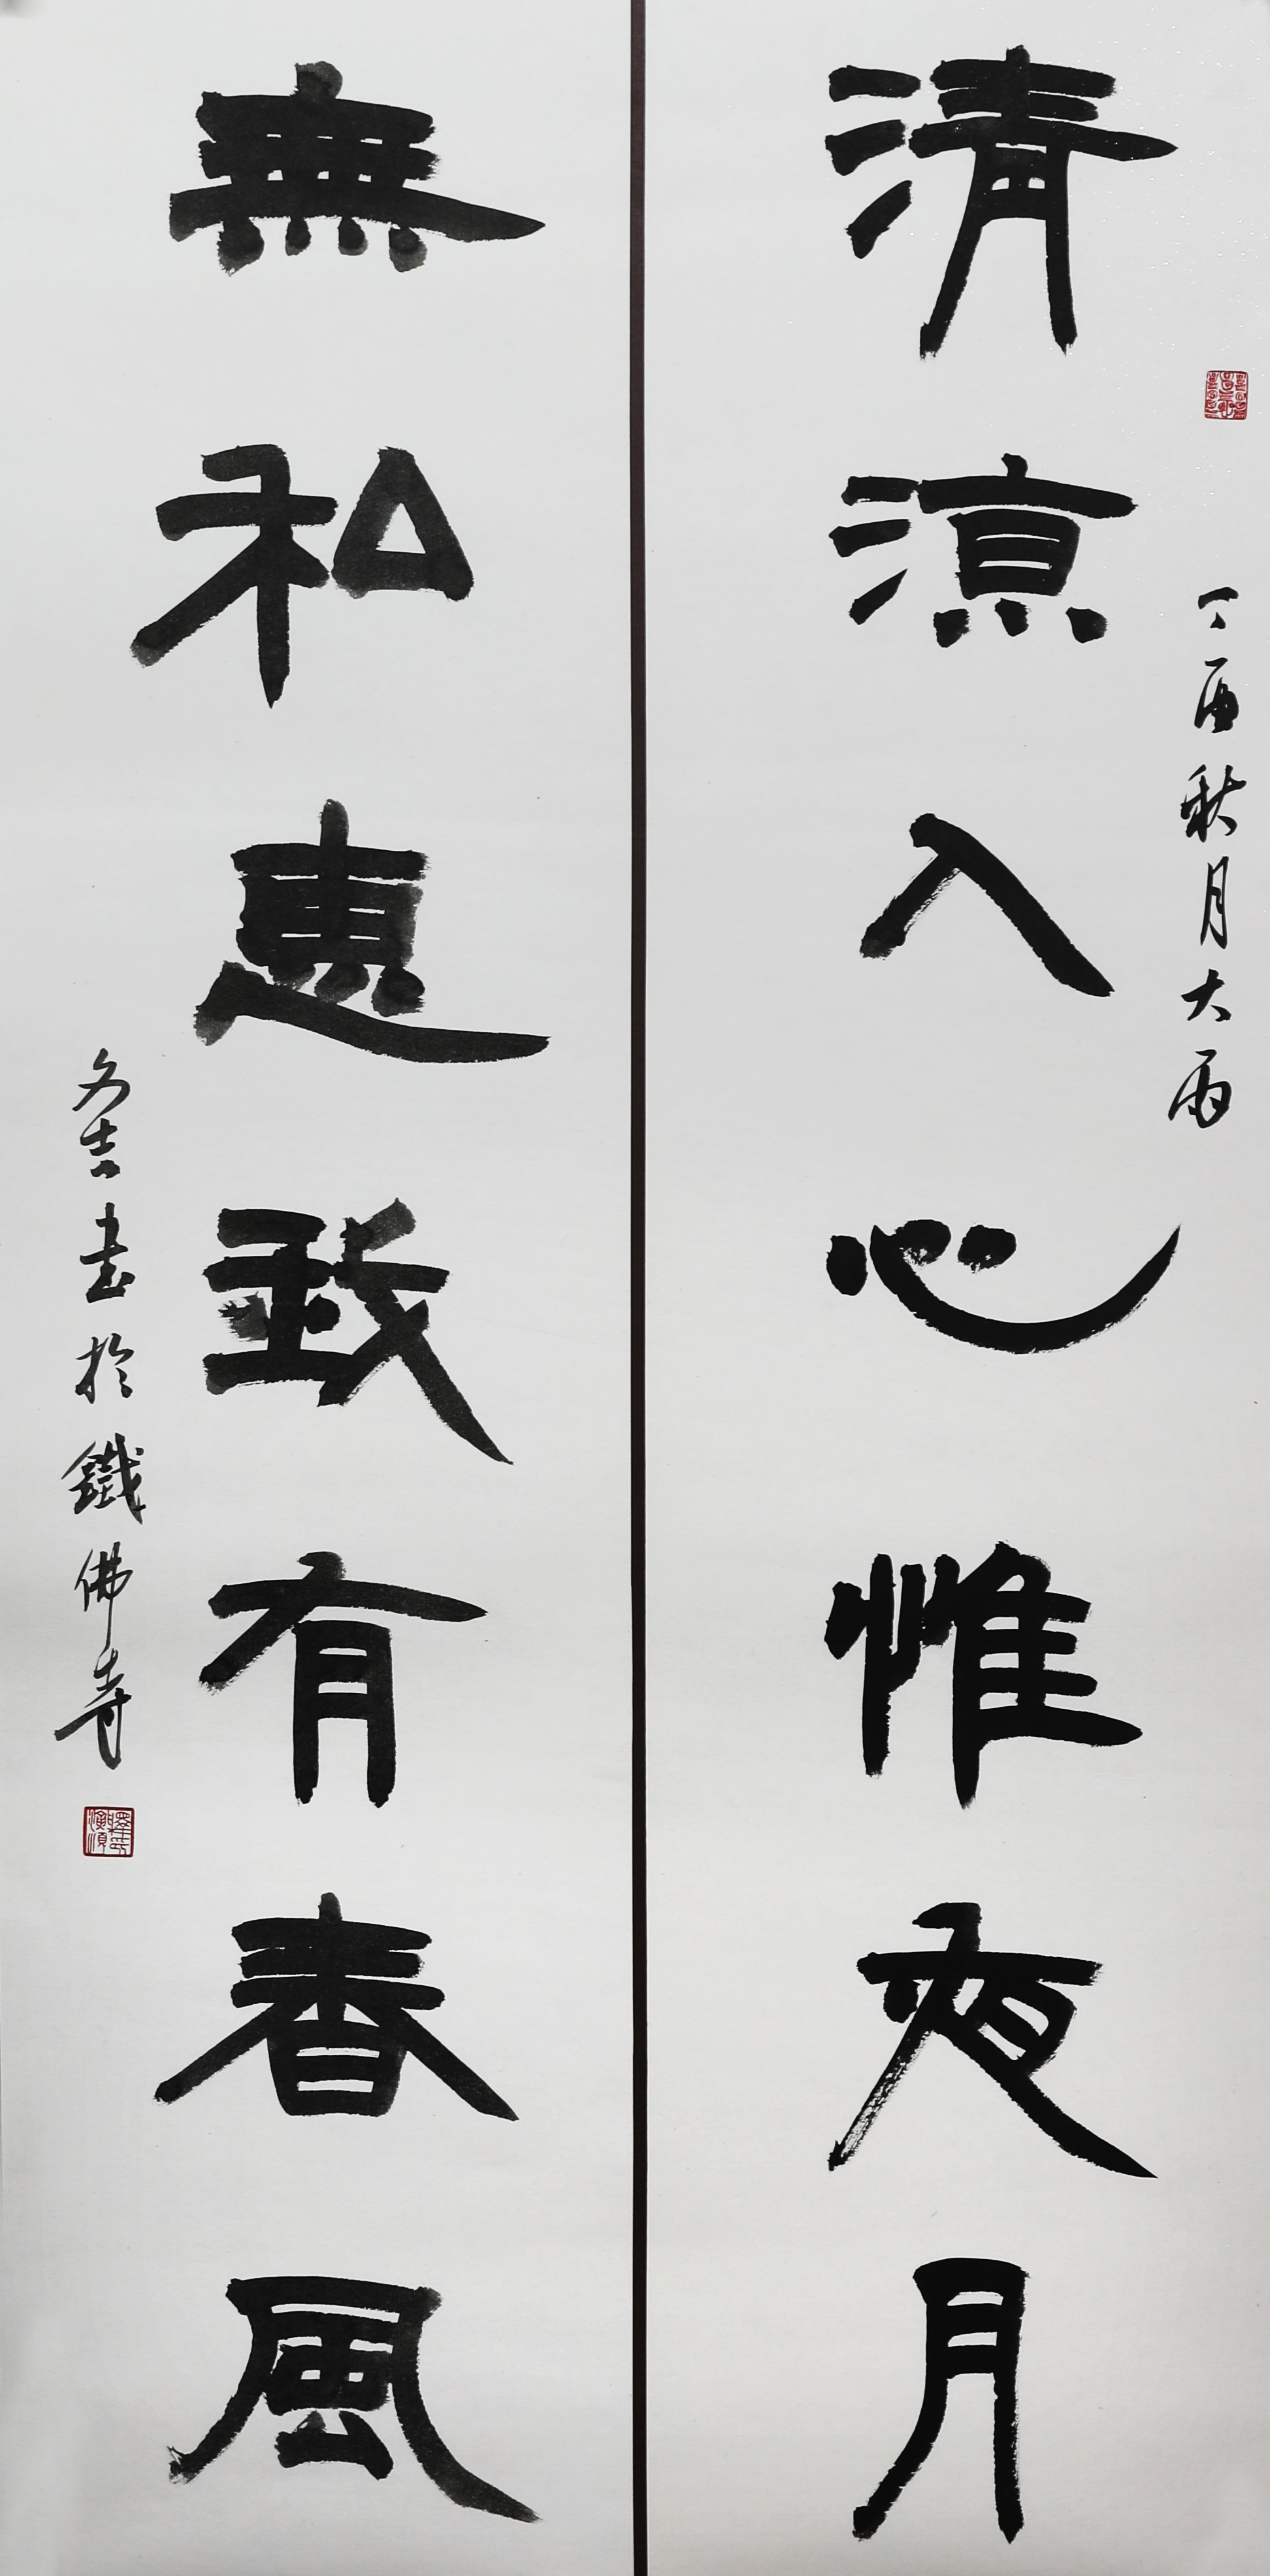 丁酉秋月大雨
清涼入心惟夜月
無私惠我有春風
多吉書於鐵佛寺